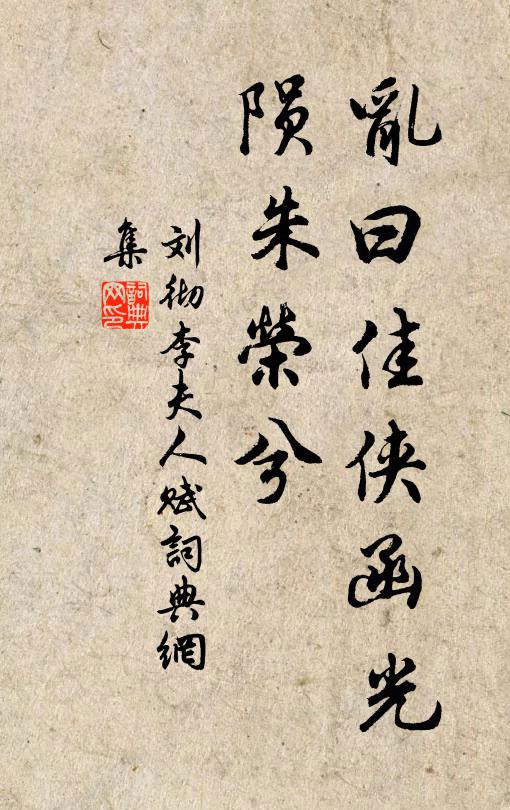 亂曰佳侠函光
陨朱榮兮
刘彻李夫人赋詞典網
集
詞典網印